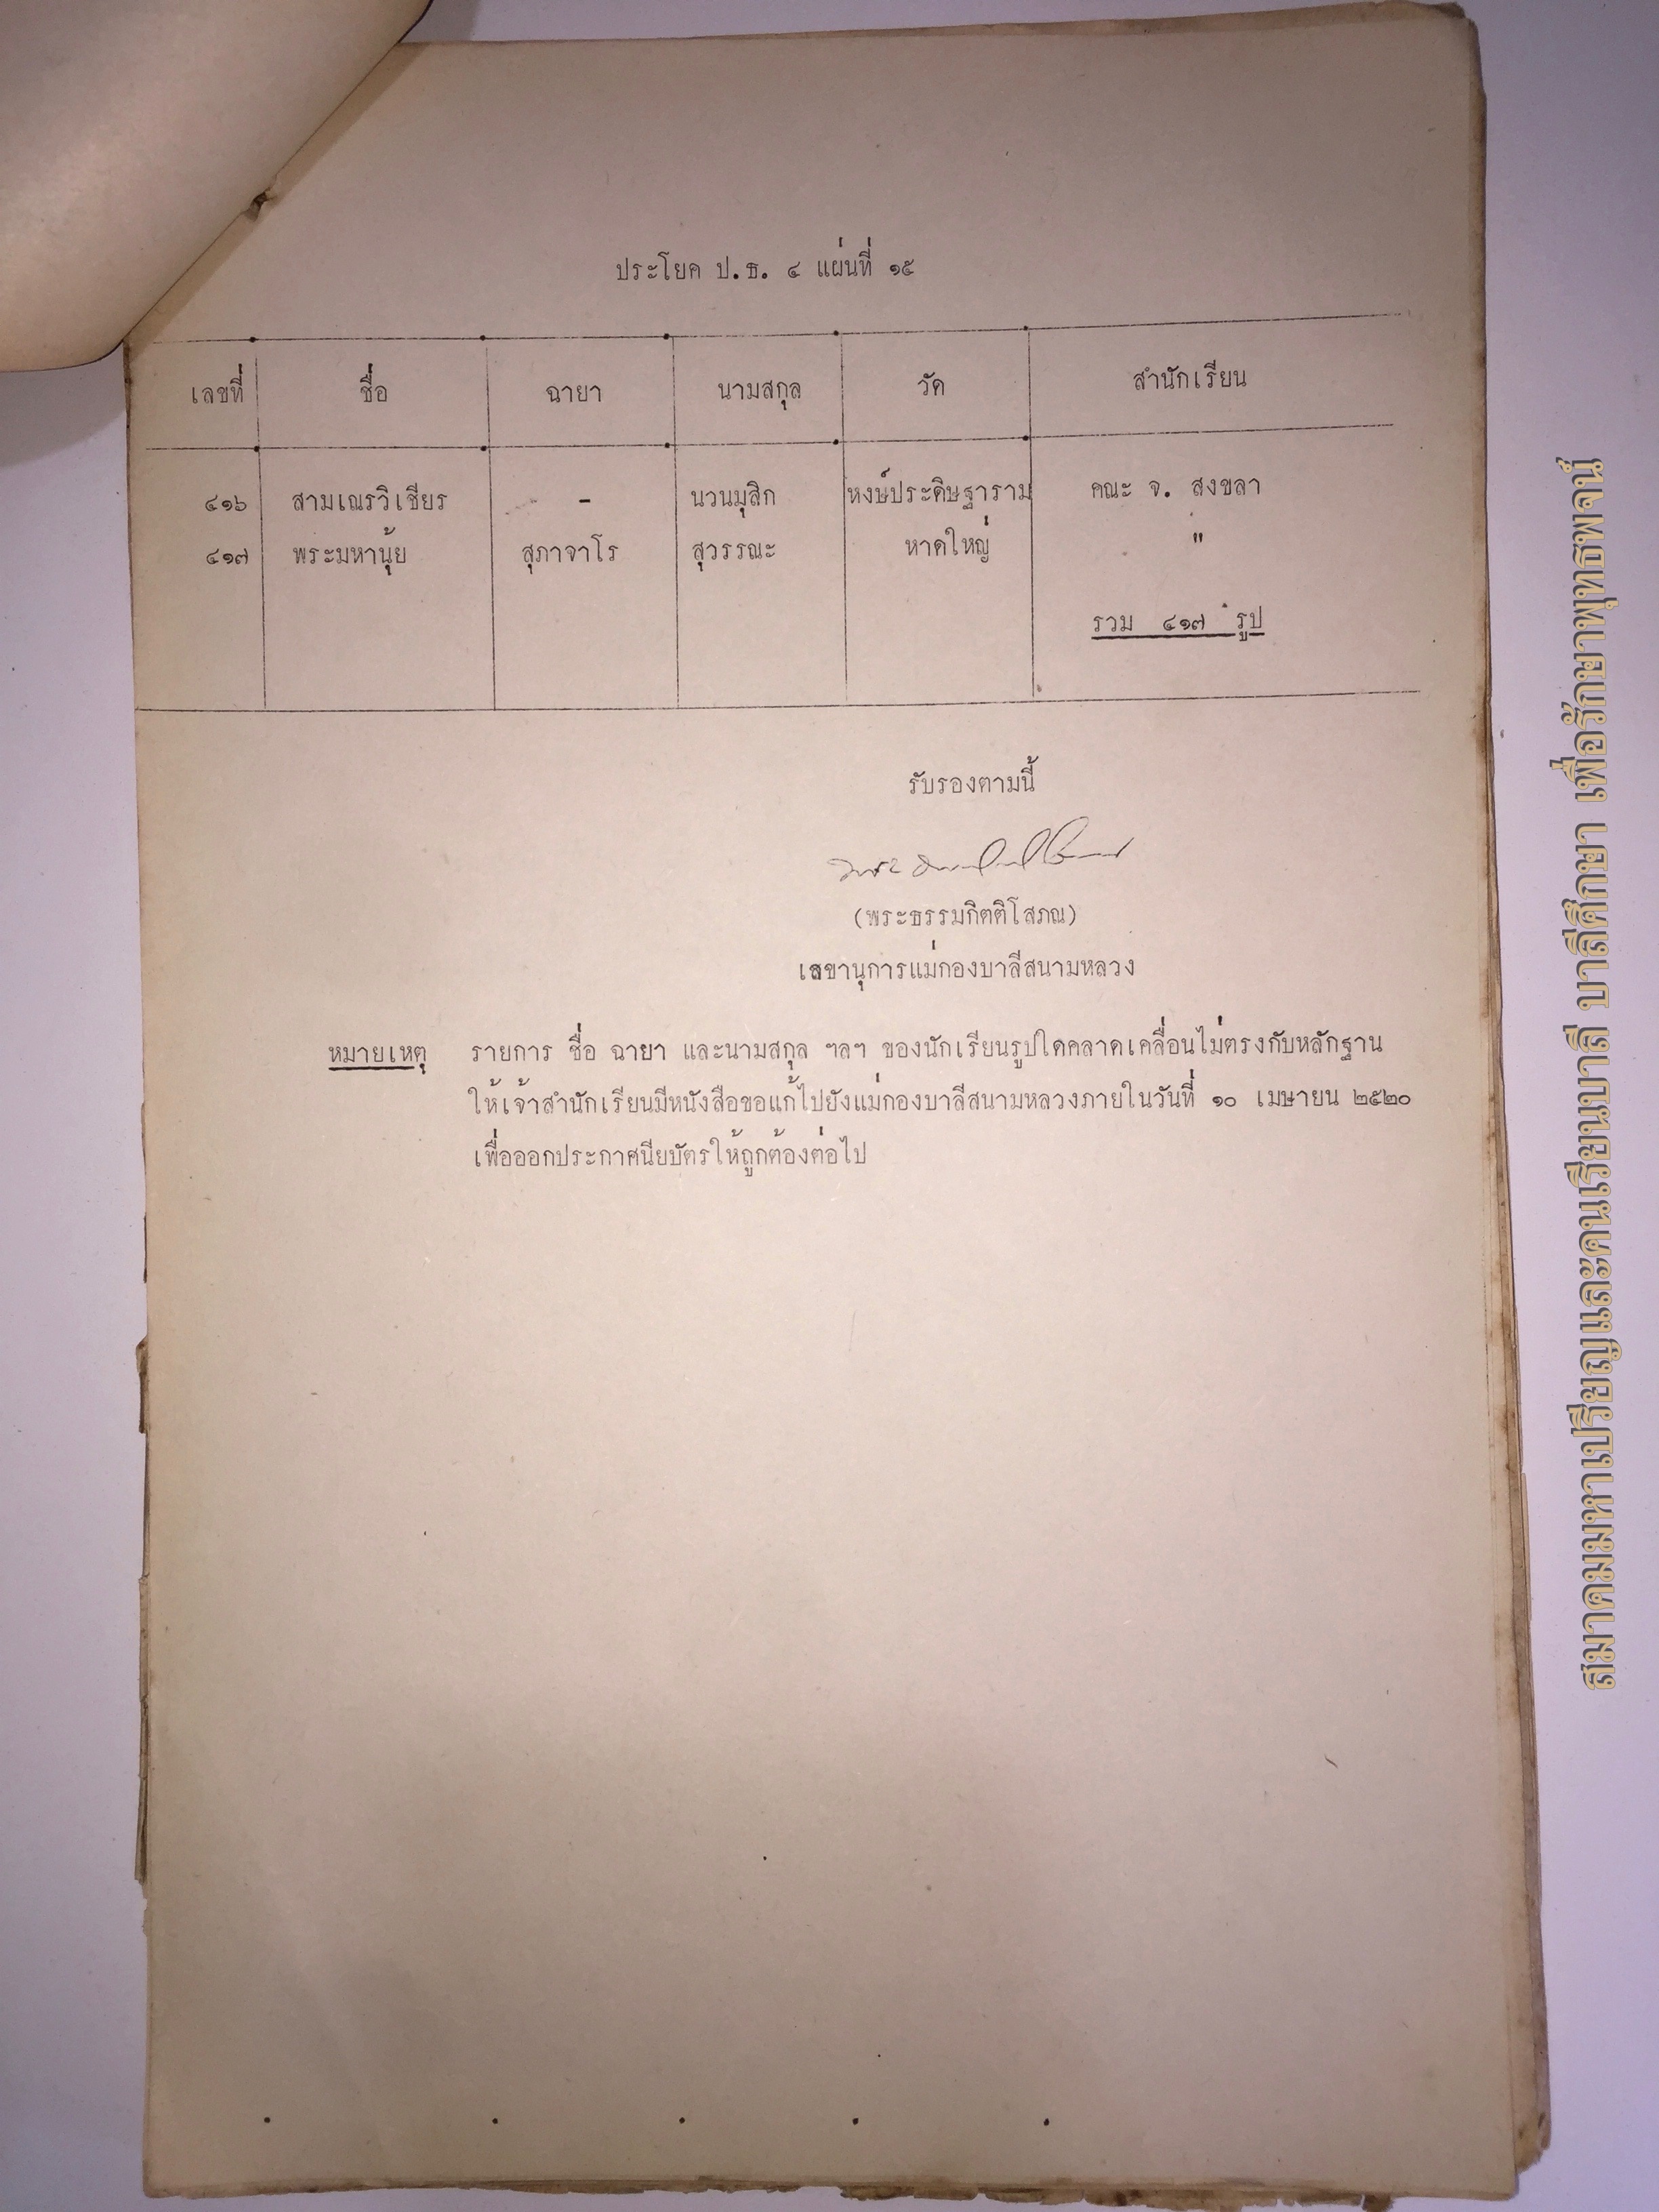 ประโยค ป.ธ. ๔ แผ่นที่ ๑๕
เลขที่ ชื่อ ฉายา นามสกุล วัด สำนักเรียน
๔๑๖ สามเณรวิเชียร - นวนมุสิก หงษ์ประดิษฐาราม คณะ จ. สงขลา
๔๑๗ พระมหานุ้ย สุภาจาโร สุวรรณะ หาดใหญ่ "
รวม ๔๑๗ รูป
รับรองตามนี้
(พระธรรมกิตติโสภณ)
เลขานุการแม่กองบาลีสนามหลวง
หมายเหตุ รายการ ชื่อ ฉายา และนามสกุล ฯลฯ ของนักเรียนรูปใดคลาดเคลื่อนไม่ตรงกับหลักฐาน
ให้เจ้าสำนักเรียนมีหนังสือขอแก้ไปยังแม่กองบาลีสนามหลวงภายในวันที่ ๑๐ เมษายน ๒๕๒๐
เพื่อออกประกาศนียบัตรให้ถูกต้องต่อไป
สมาคมมหาเปรียญและคนเรียนบาลี บาลีศึกษา เพื่อรักษาพุทธพจน์